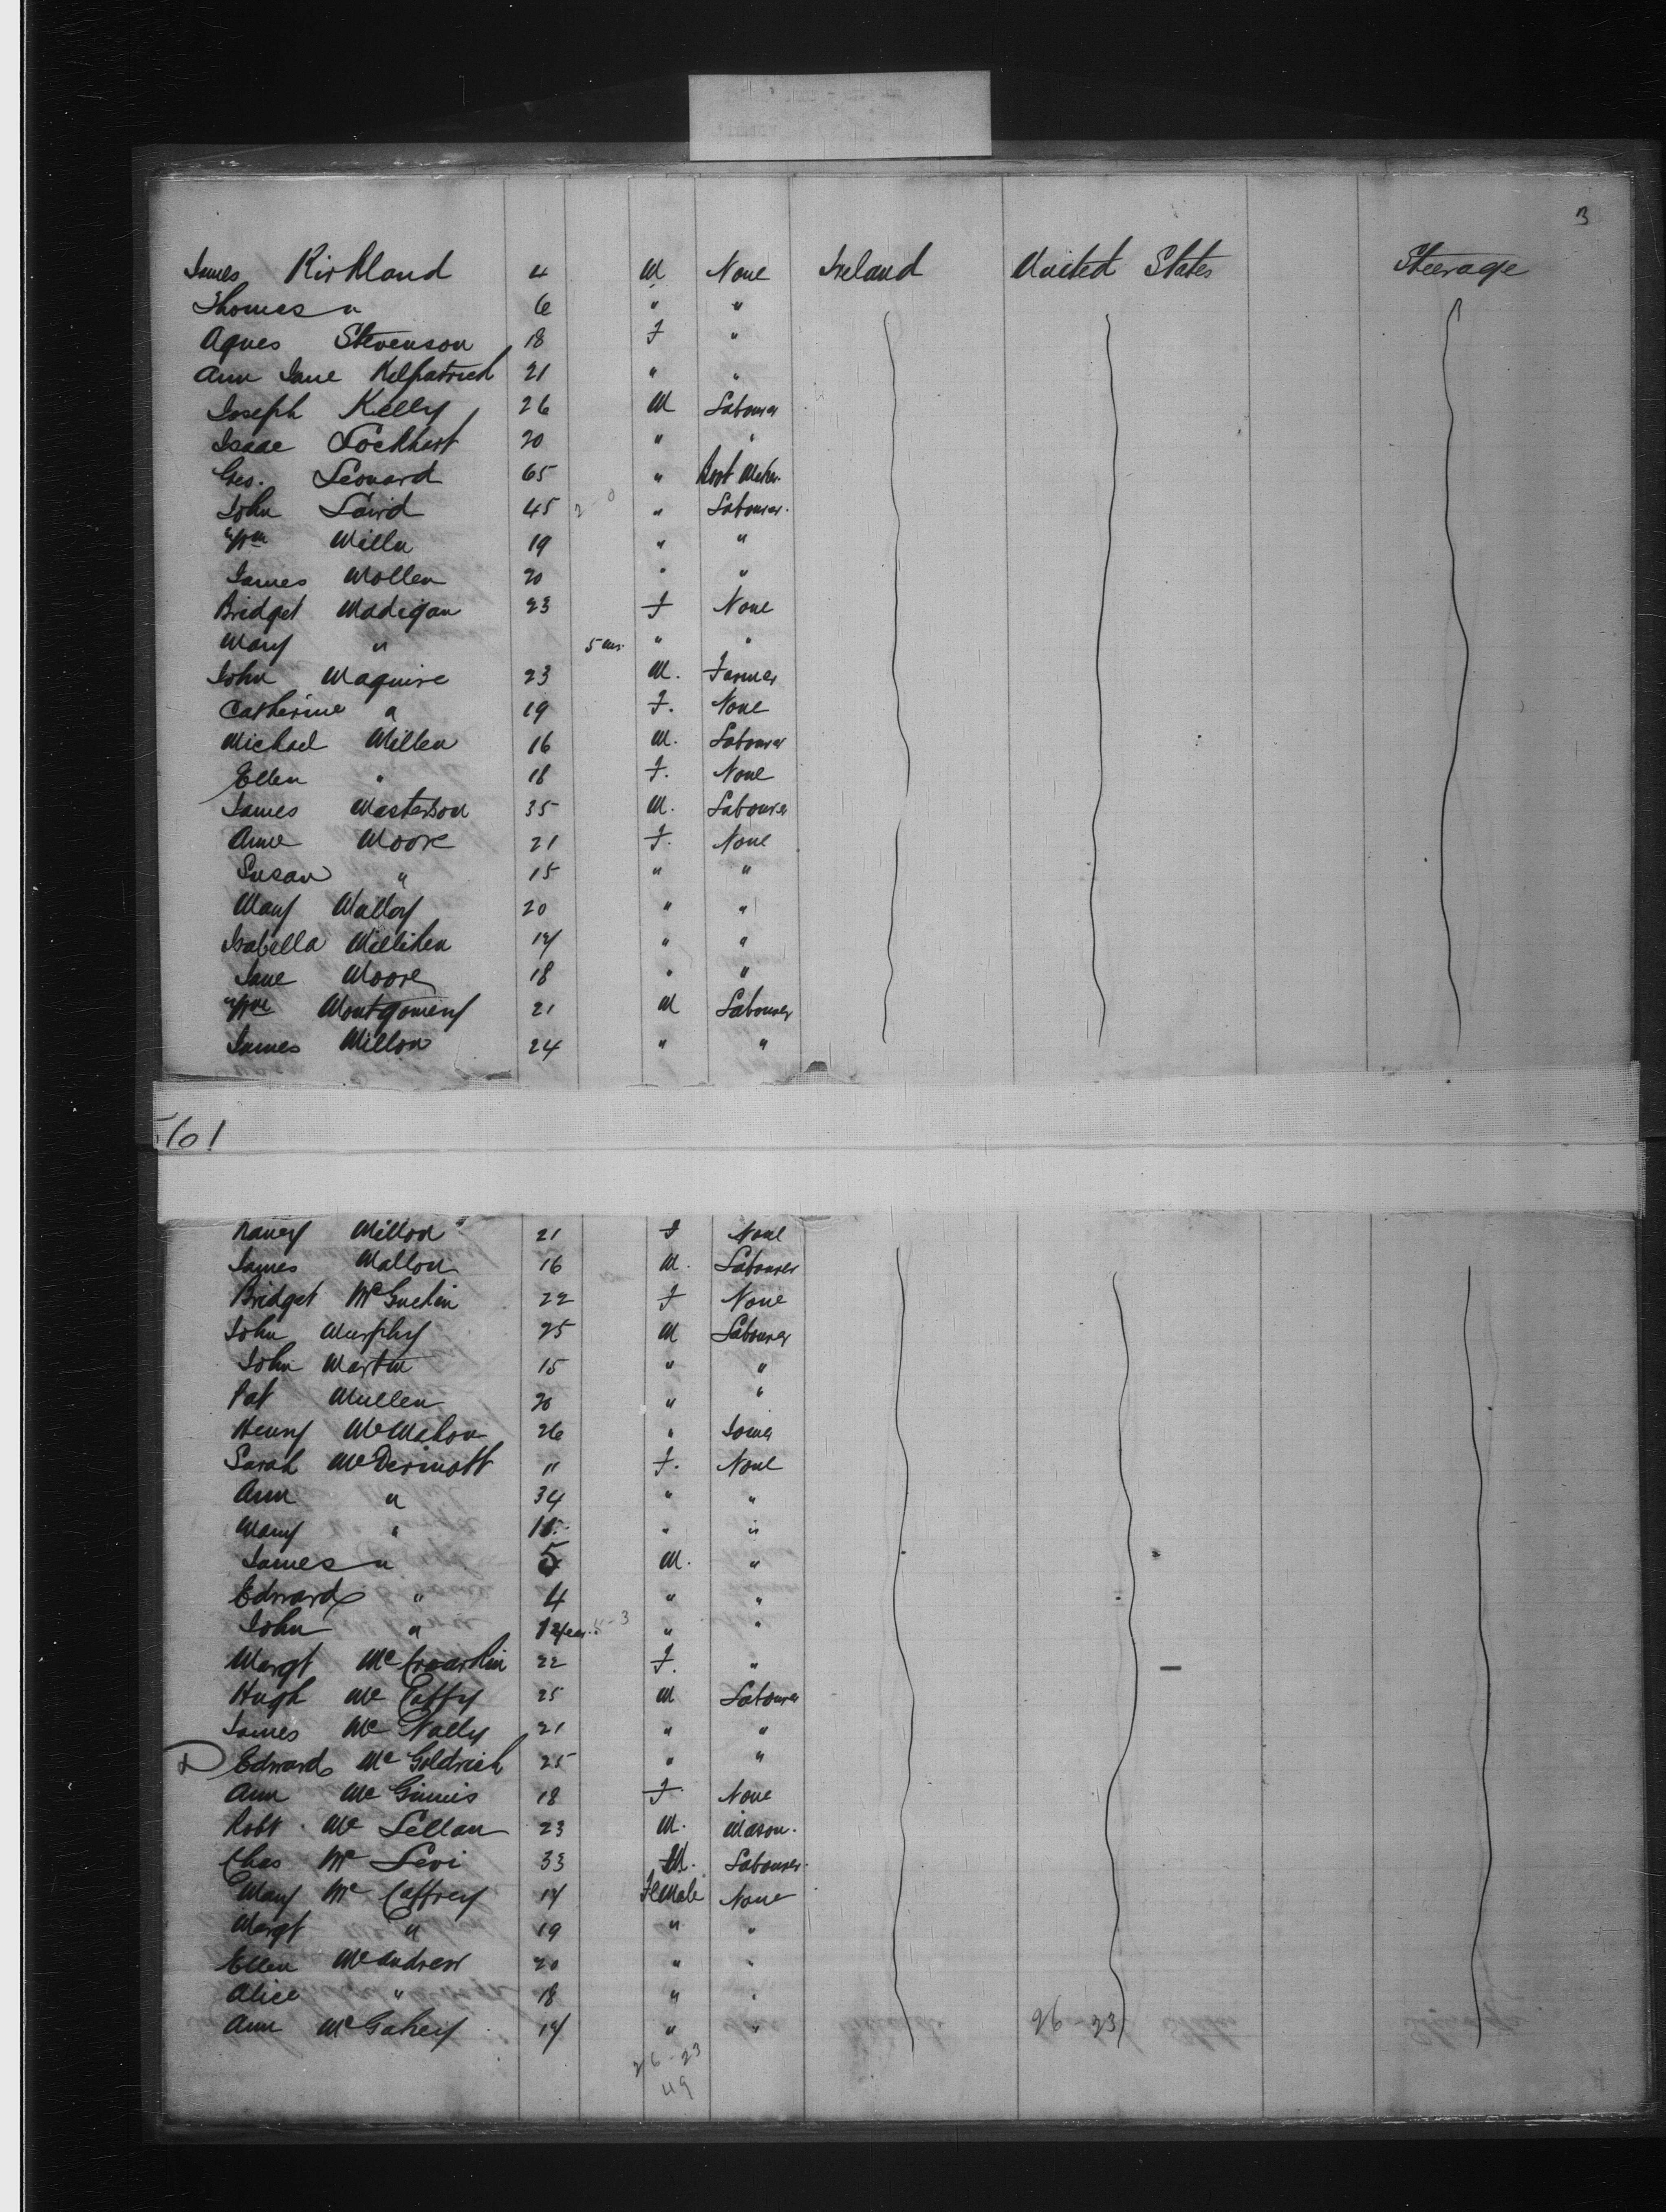 3
James Kirkland 4 M None Ireland United States Steerage
Thomas " 6 " "
Agnes Stevenson 18 F "
Ann Jane Kilpatrick 21 " "
Joseph Kelly 26 M Labourer
Isaac Lockhart 20 " "
Geo. Leonard 65 " Boot Maker
John Laird 45 " Labourer
Wm Millu 19 " "
James Mollen 20 " "
Bridget Madigan 23 F None
Mary " 5 ms. " "
John Maguire 23 M. Farmer
Catherine " 19 F. None
Michael Millen 16 M. Labourer
Ellen " 18 F. None
James Masterson 35 M. Labourer
Anne Moore 21 F. None
Susan " 15 " "
Mary Malloy 20 " "
Isabella Milliken 17 " "
Jane Moore 18 " "
Wm Montgomery 21 M Labourer
James Millon 24 " "
561
Nancy Millon 21 F None
James Mallon 16 M. Labourer
Bridget McGuckin 22 F None
John Murphy 25 M Labourer
John Martin 15 " "
Pat Mullen 20 " "
Henry McMahon 26 "
Sarah McDermott " F. None
Ann " 34 " "
Mary " " "
James " 5 M. "
Edward " 4 " "
John " " "
Margt 22 F. "
Hugh McCaffry 25 M Labourer
James McNally 21 " "
D Edward McGoldrick 25 " "
Ann McGinnis 18 F. None
Robt. McLellan 23 M. Mason.
Chas McLevi 33 M. Labourer
Mary McCaffrey 17 Female None
Margt " 19 " "
Ellen McAndrew 20 " "
Alice " 18 " "
Ann McGahey 17 " " 26-23
26-23
49